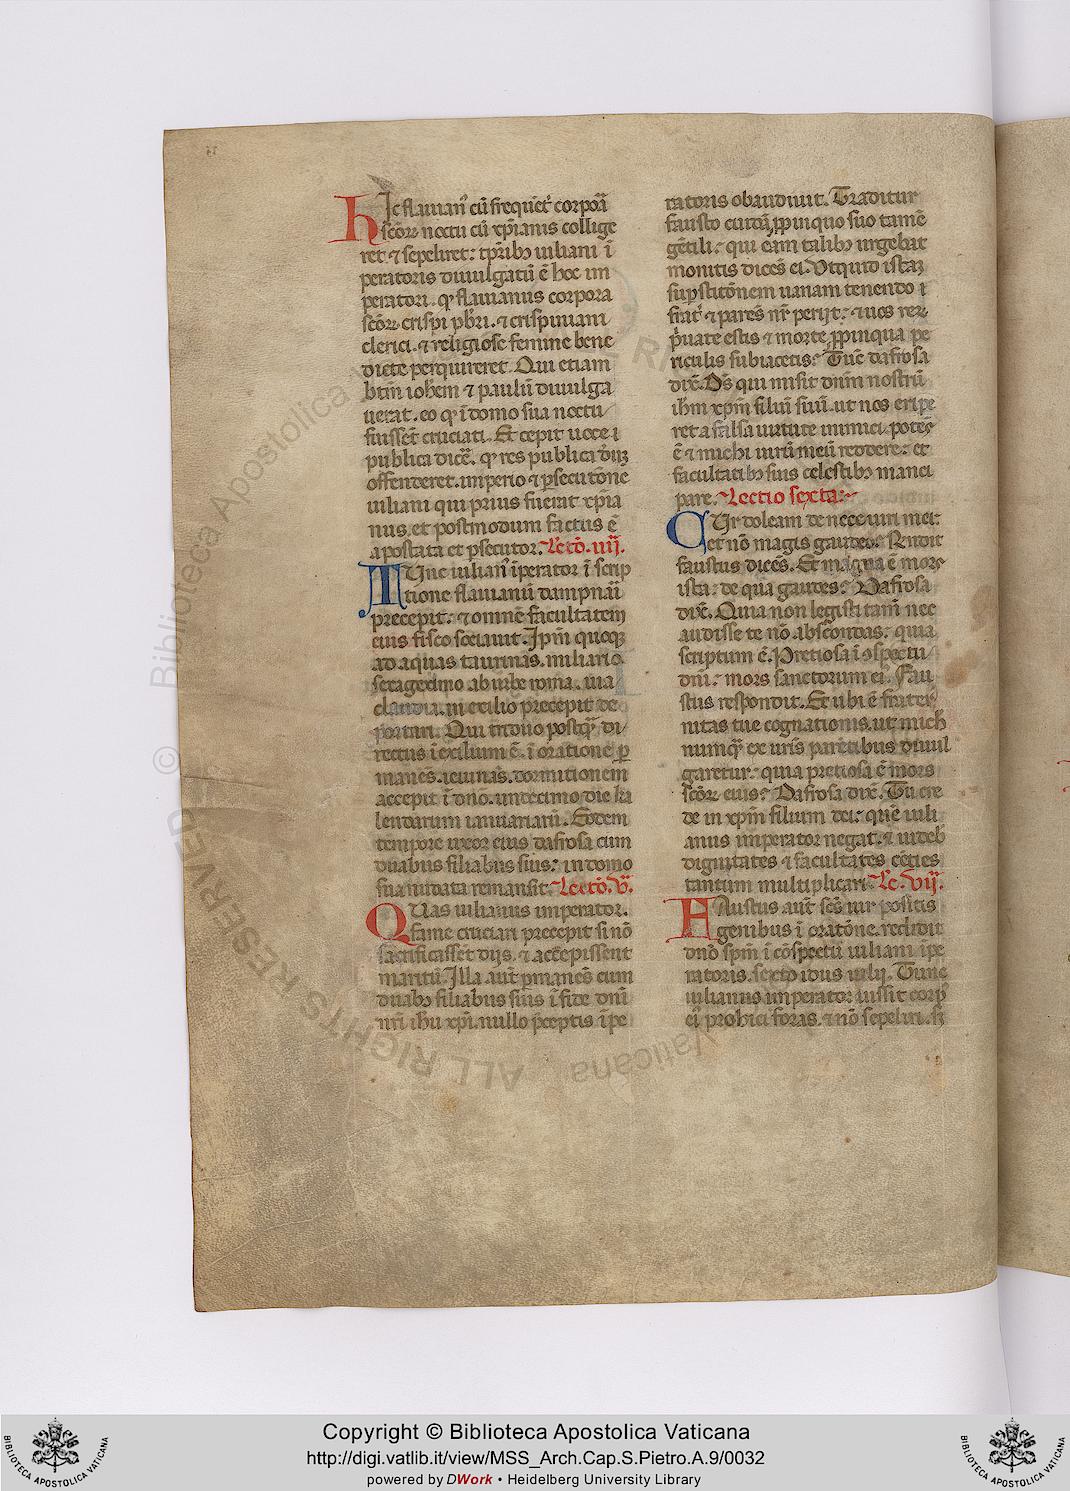 Hic flauian᷒ cū frequēt᷑ corpoā
scōꝝ noctu cū xp̄ianis collige
ret ⁊ sepeliret: tp̄ribꝫ iuliani ī
peratoris diuulgatū ē hoc im
peratori. qꝫ flauianus corpora
scōꝝ crispi pb̄ri. ⁊ crispiniani
clerici. ⁊ religiose femine bene
dicte perquireret. Qui etiam
btm̄ ioh̄em ⁊ paulū diuulga
uerat. eo qꝫ ī domo sua noctu
fuissēt cruciati. Et cepit uoce
publica dicē. qꝫ res publica
offenderet. imperio ⁊ ꝑsecutōne
iuliani qui prius fuerat xp̄ia
nus. et postmodum factus ē
apostata et ꝑsecutor. Lectō. iiij.
Tunc iulian᷒ īperator ī scrip
tione flauianū dampnari
precepit: ⁊ omnē facultatem
eius fisco sociauit. Ipm̄ quoqꝫ
ad aquas taurinas. miliario
sexagesimo ab urbe roma. uia
claudia. in exilio precepit de
portari. Qui tn̄ duo postqꝫ̄ di
rectus ī exilium ē. ī oratione ꝑ
manēs. ieiunās. dormitionem
accepit ī dn̄o. undecimo die ka
lendarum ianuariarū. Eodem
tempore uxor eius dafrosa cum
duabus filiabus suis: in domo
sua nudata remansit. Lectō. v̄.
Quas iulianus imperator.
fame cruciari precepit si nō
sacrificassēt dijs. ⁊ accēpissent
maritū. Illa aut̄ ꝑmanēs cum
duabꝫ filiabus suis ī fide dn̄i
nr̄i ih̄u xp̄i. nullo p̄ceptis īpe
ratoris obaudiuit. Traditur
fausto cuidā ꝓpinquo suo tamē
gētili: qui eam talibꝫ urgebat
monitis dicēs ei. Ut quid istaꝫ
suꝑstitōnem uanam tenendo
frat᷑ ⁊ parēs nr̄ perijt: ⁊ uos reꝝ
p̄uate estis ⁊ morte ꝓpinqua pe
riculis subiacetis: Tūc dafrosa
dix̄. Dſ̄ qui misit dn̄m nostrū
ih̄m xp̄m filiū suū. ut nos eripe
ret a falsa uirtute inimici. potēs
ē ⁊ michi uirū meū reddere: et
facultatibꝫ suis celestibꝫ manci
pare. Lectio sexta:~
Cur doleam de nece uiri mei:
et nō magis gaudeo. Rn̄dit
faustus dicēs. Et magna ē mors
ista: de qua gaudes: Dafrosa
dix̄. Quia non legisti tam̄ nec
audisse te nō abscondas: quia
scriptum ē. Pretiosa ī ꝯspectu
dn̄i: mors sanctorum ei᷒. Fau
stus respondit. Et ubi ē frater
nitas tue cognationis. ut mich
numqꝫ̄ ex uris̄ parētibus diuul
garetur: quia pretiosa ē mors
scōꝝ eius: Dafrosa dix̄. Tu cre
de in xp̄m filium dei: quē iuli
anus imperator negat. ⁊ uideb
dignitates ⁊ facultates cēties
tantum multiplicari. Lc̄. vij.
Faustus aut̄ scs̄ uir positis
genibus ī oratōne. reddidit
dn̄o spm̄ ī cōspectu iuliani īpe
ratoris. sexto idus iulij. Tunc
iulianus imperator iussit corp᷒
ei᷒ prohici foras. ⁊ nō sepeliri. sꝫ
Copyright © Biblioteca Apostolica Vaticana
http://digi.vatlib.it/view/MSS_Arch.Cap.S.Pietro.A.9/0032
powered by DWork • Heidelberg University Library
BIBLIOTECA APOSTOLICA VATICANA
BIBLIOTECA APOSTOLICA VATICANA